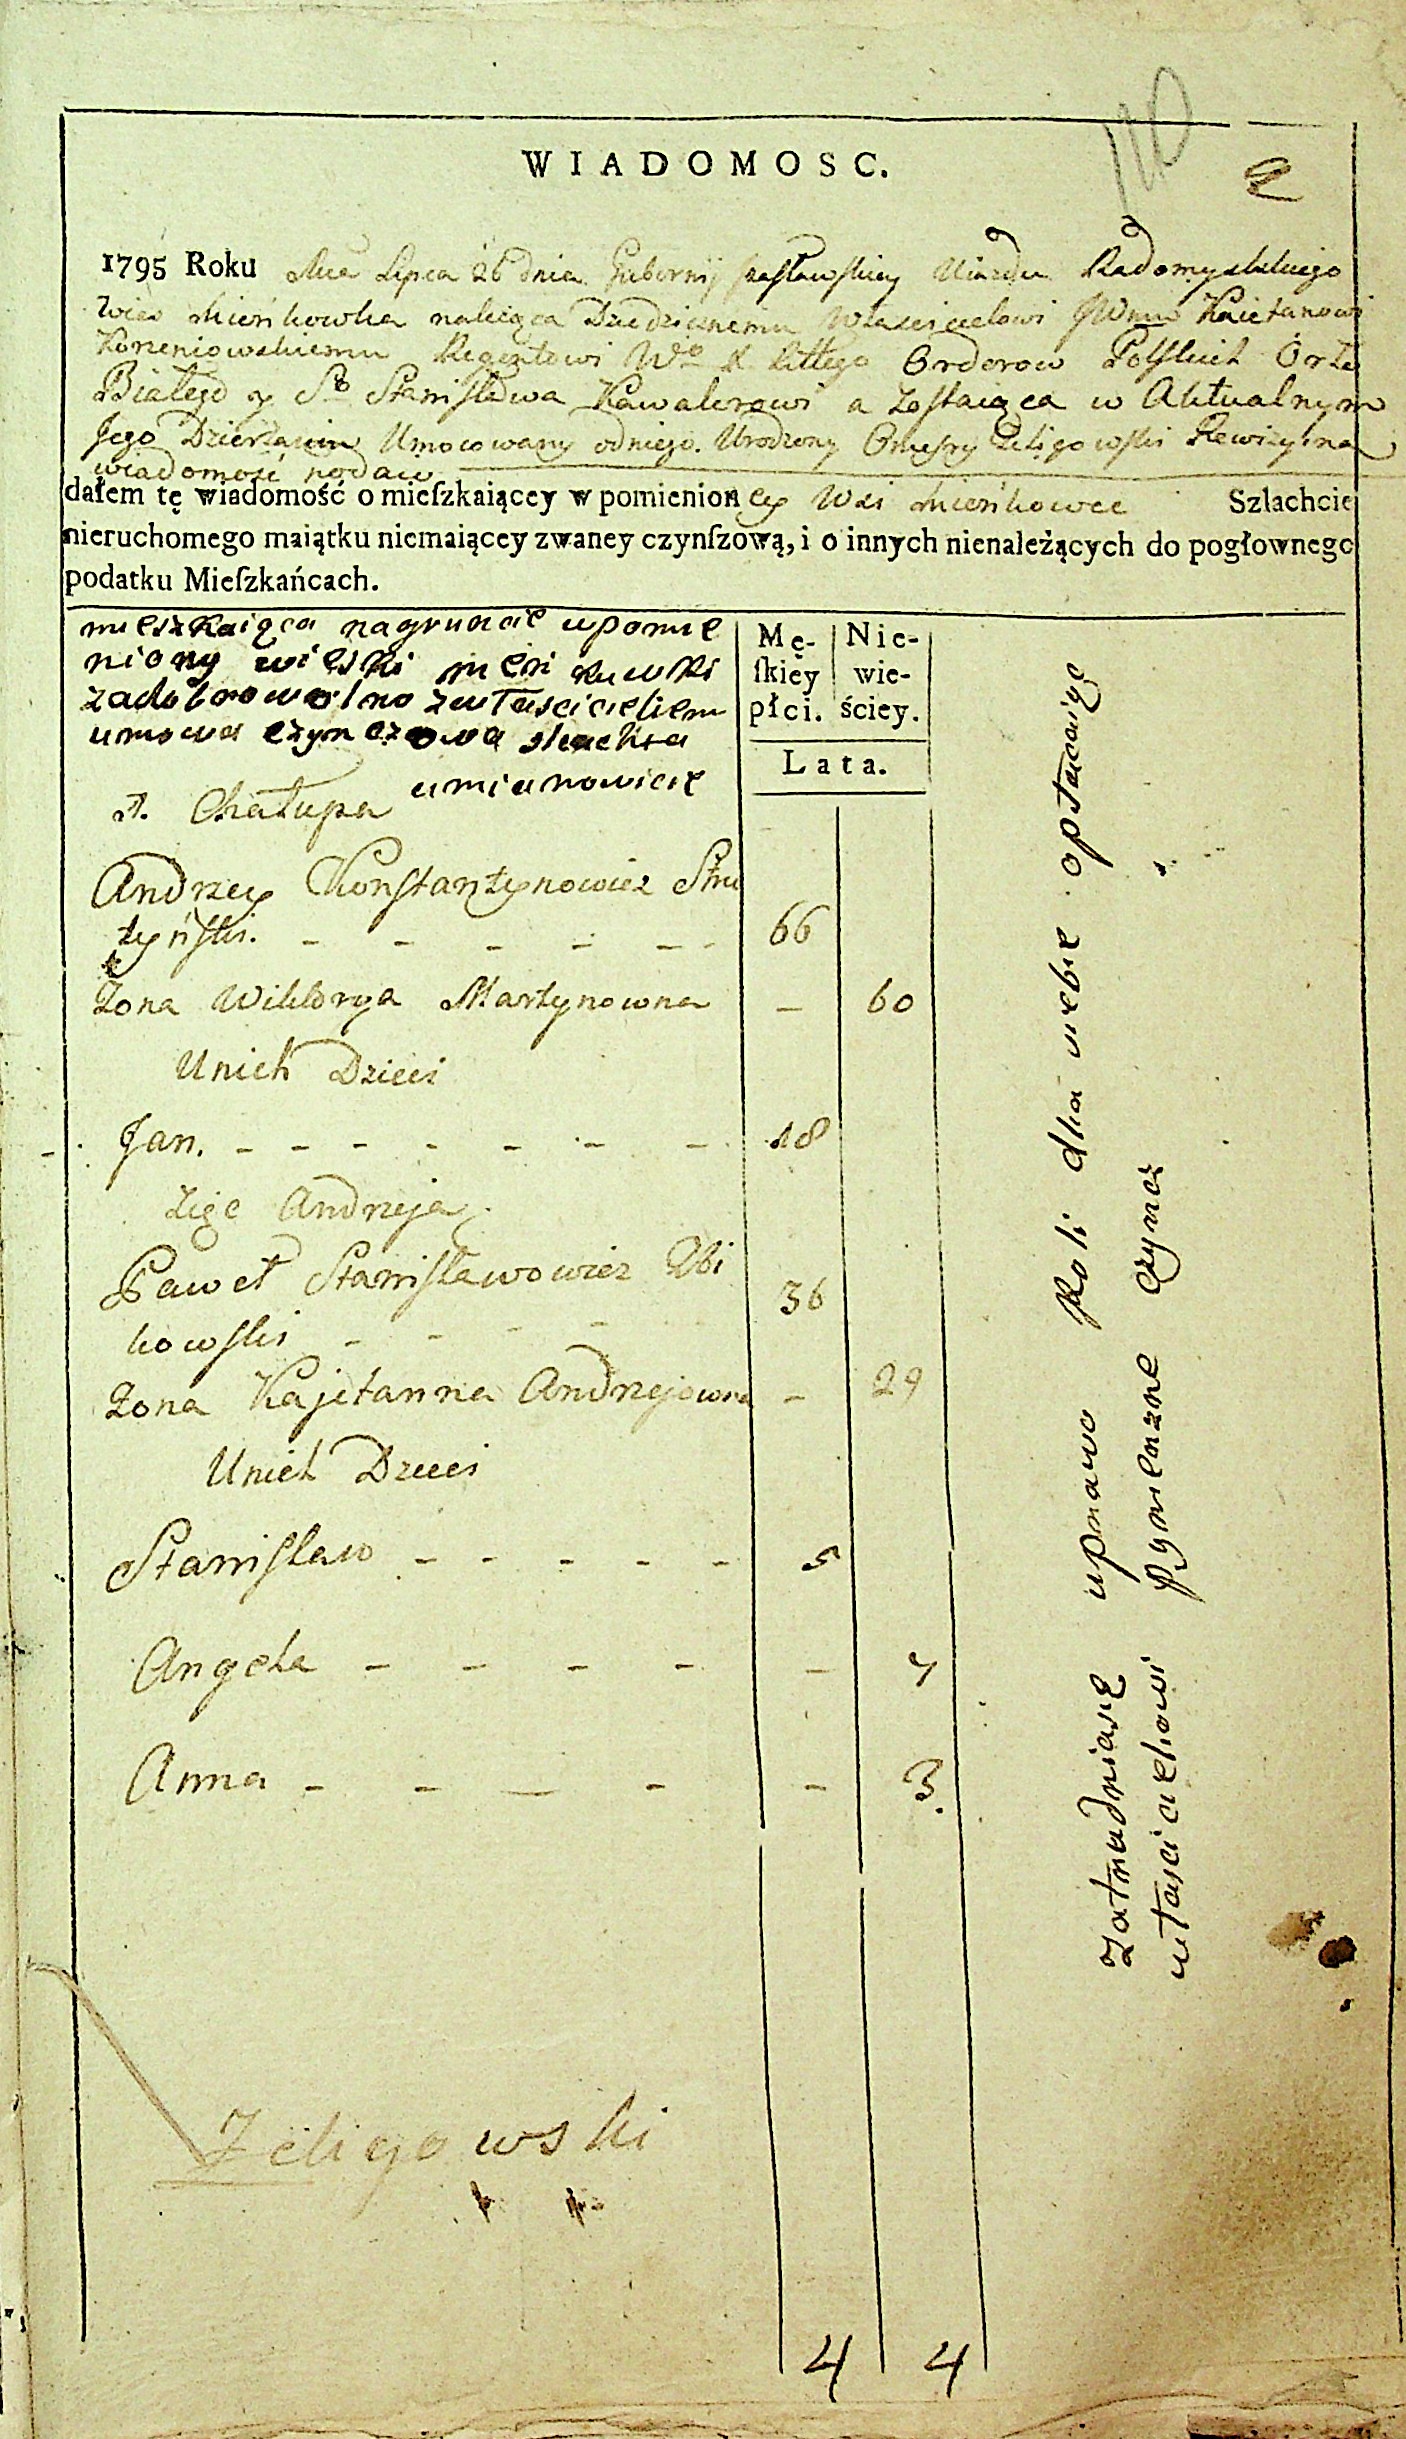 110
2
WIADOMOSC.
1795 Roku Mca Lipca 26 dnia Gubernij Zasławskiey Uiazdu Radomyslskiego
Wies Mieńkowka należąca Dziedzicznemu Właścicielowi JWmu Kaietanowi
Korzeniowskiemu Regentowi Wo X Littego Orderow Polskich Orła
Białego y So Stanisława Kawalerowi a Zostaiąca w Aktualnym
Jego Dzierżaniu Umocowany odniego. Urodzony Żeligowski Rewizyina
wiadomość podaie
dałem tę wiadomość o mieſzkaiącey w pomienioney Wsi Mieńkowce Szlachcie
nieruchomego maiątku niemaiącey zwaney czynſzową, i o innych nienależących do pogłownego
podatku Mieſzkańcach.
mieszkaiąca nagruncie wpomie
niony wieski Meńkuwki
zadobrowolno zwłascicieliem
umowa czynczowa sliachta
amianowicie
Mę-
ſkiey
płci.
Nie-
wie-
ściey.
Lata.
1. Chałupa
Andrzey Konstantynowicz Stru
tyński. - - - - - - 66
Zona Wiktorya Martynowna - 60
Unich Dzieci
Jan. - - - - - - - 18
Zięc Andrzeja
Paweł Stanisławowicz Zbi
kowski - - - - 36
Zona Kajetanna Andrzejowna - 29
Unich Dzieci
Stanisław - - - - - 5
Angela - - - - - 7
Anna - - - - - 3.
Zatrudniasię uprawo Roli dlia siebie opłacaiąc
włascicieliowi pynienzne czyncz
Zeligowski
4 4